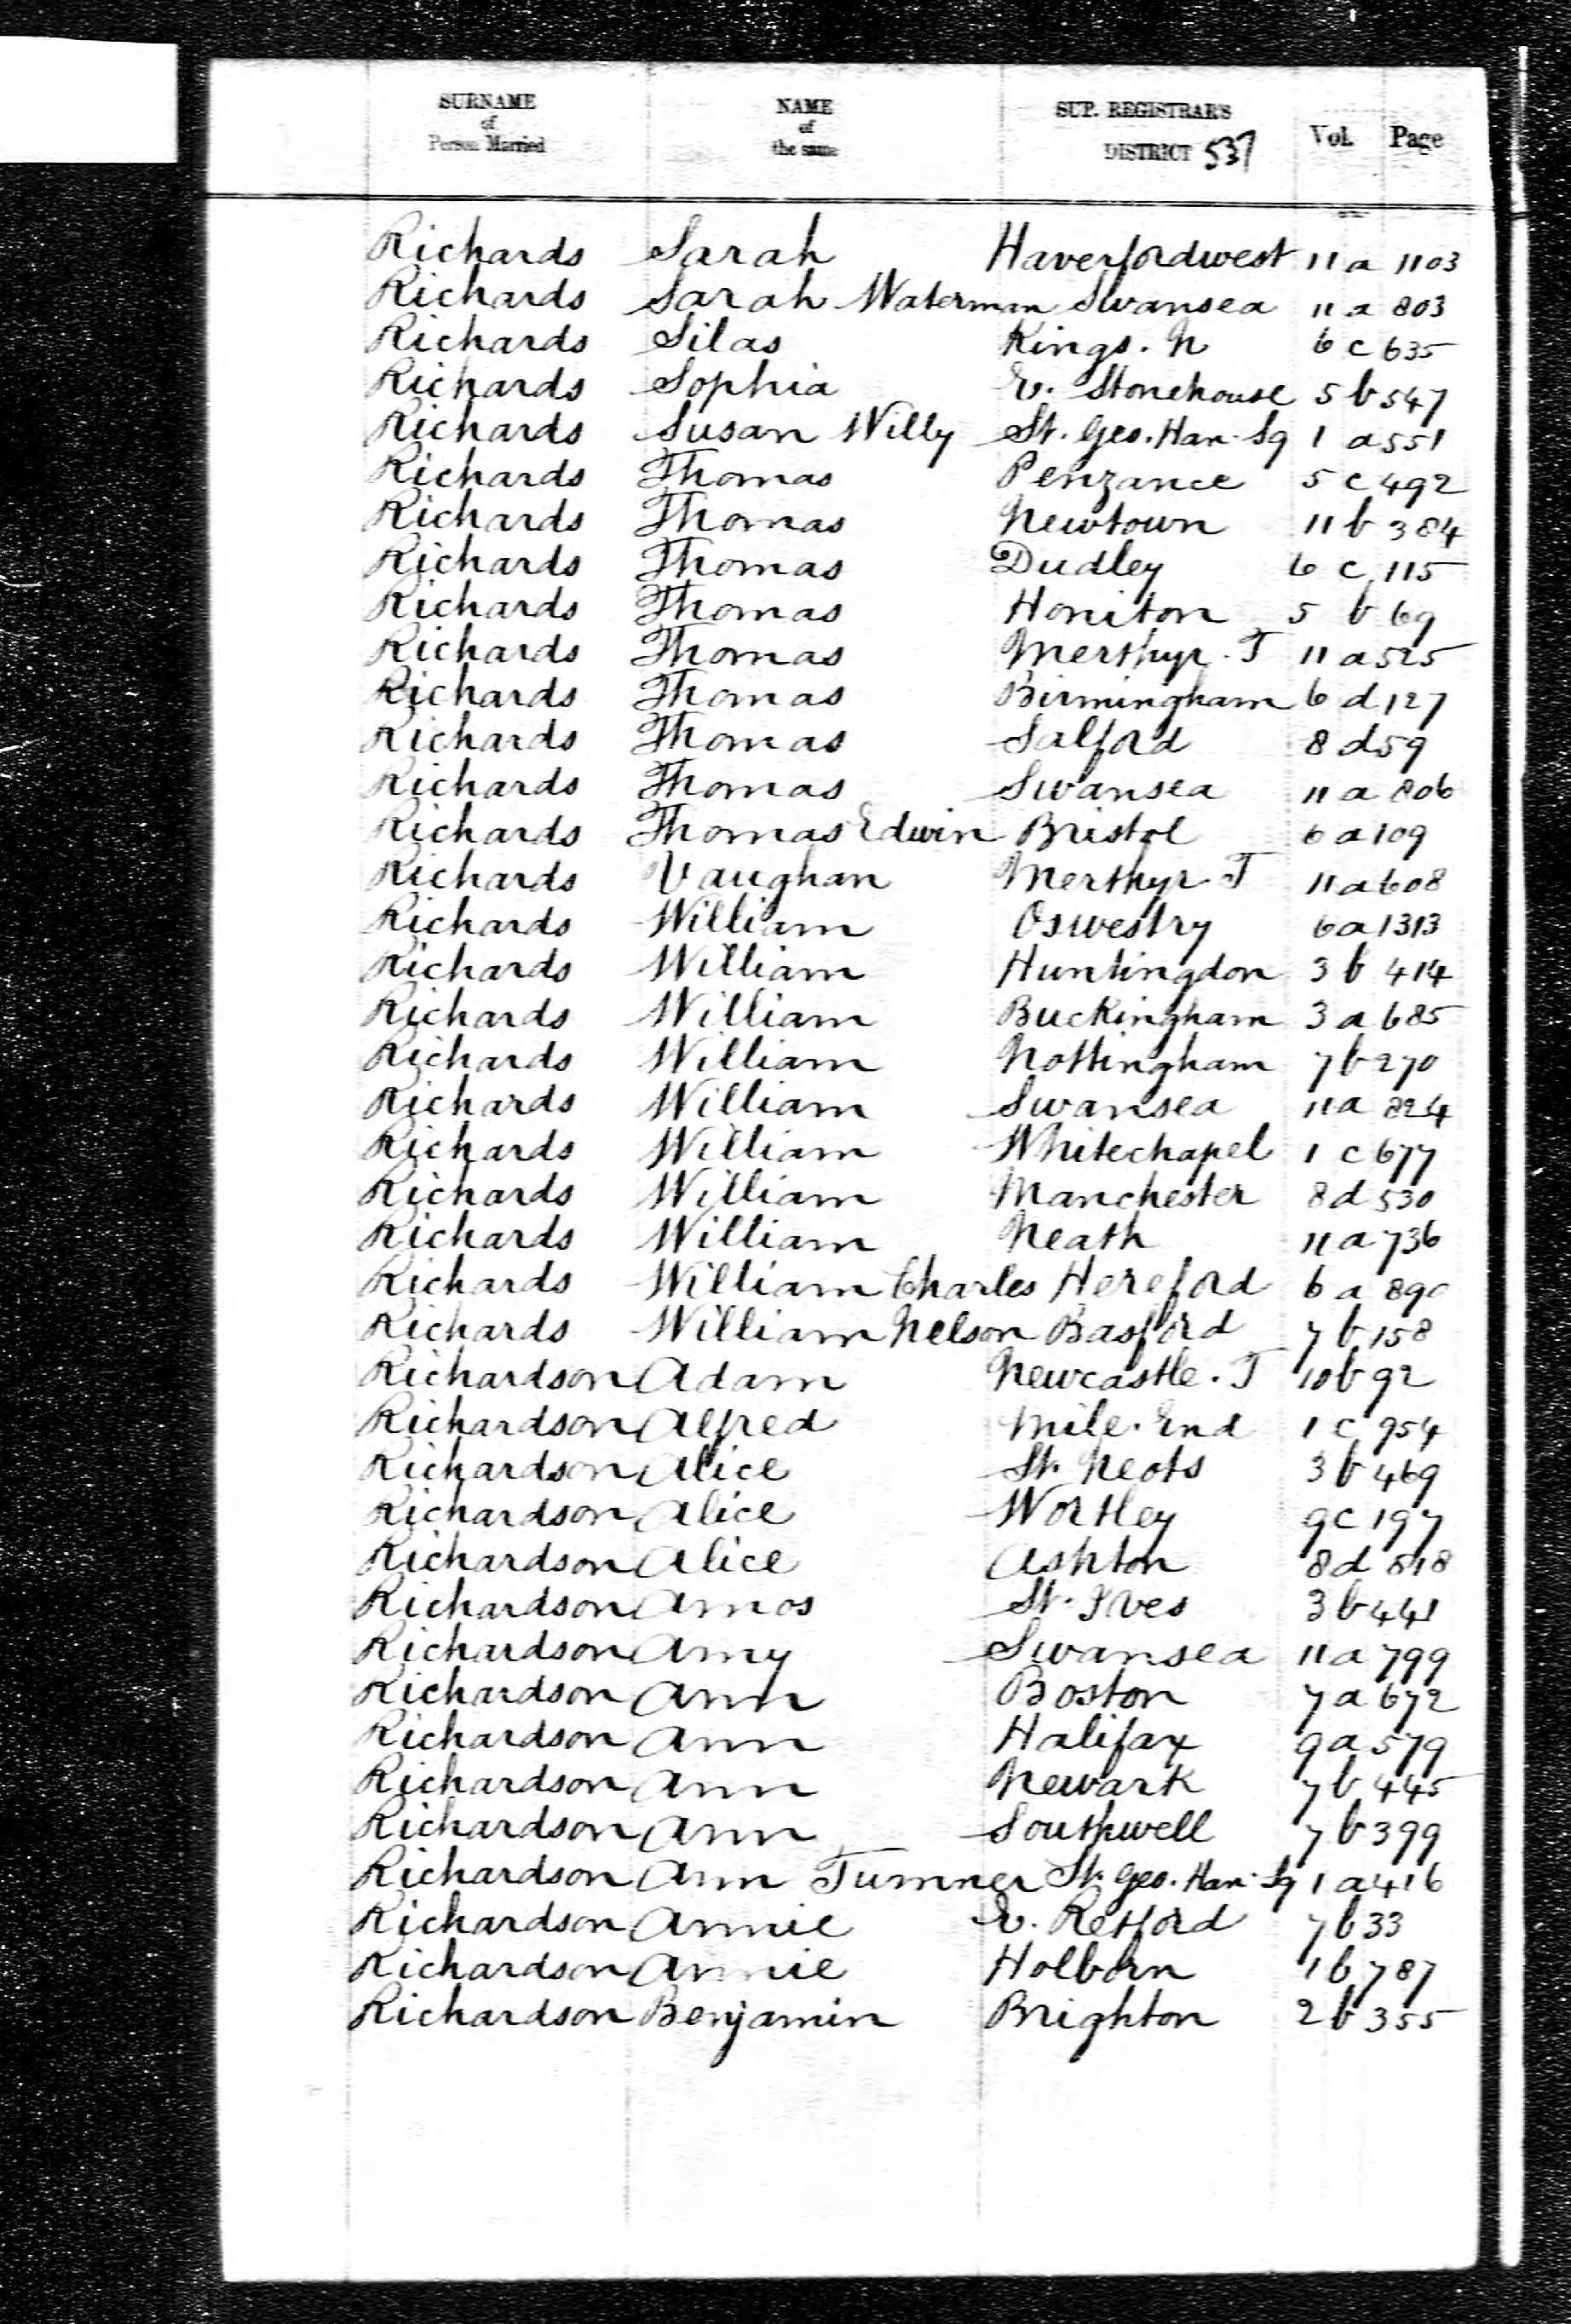 SURNAME of Person Married NAME of the same SUP. REGISTRAR'S DISTRICT 537 Vol. Page
Richards Sarah Haverfordwest 11a 1103
Richards Sarah Waterman Swansea 11a 803
Richards Silas Kings. N 6c 635
Richards Sophia E. Stonehouse 5b 547
Richards Susan Willy St. Geo. Han. Sq 1a 551
Richards Thomas Penzance 5c 492
Richards Thomas Newtown 11b 384
Richards Thomas Dudley 6c 115
Richards Thomas Honiton 5b 69
Richards Thomas Merthyr. T 11a 525
Richards Thomas Birmingham 6d 127
Richards Thomas Salford 8d 59
Richards Thomas Swansea 11a 806
Richards Thomas Edwin Bristol 6a 109
Richards Vaughan Merthyr. T 11a 608
Richards William Oswestry 6a 1313
Richards William Huntingdon 3b 414
Richards William Buckingham 3a 685
Richards William Nottingham 7b 270
Richards William Swansea 11a 824
Richards William Whitechapel 1c 677
Richards William Manchester 8d 530
Richards William Neath 11a 736
Richards William Charles Hereford 6a 890
Richards William Nelson Basford 7b 158
Richardson Adam Newcastle. T 10b 92
Richardson Alfred Mile. End 1c 954
Richardson Alice St. Neots 3b 469
Richardson Alice Wortley 9c 197
Richardson Alice Ashton 8d 518
Richardson Amos St. Ives 3b 441
Richardson Amy Swansea 11a 799
Richardson Ann Boston 7a 672
Richardson Ann Halifax 9a 579
Richardson Ann Newark 7b 445
Richardson Ann Southwell 7b 399
Richardson Ann Tumner St. Geo. Han. Sq 1a 416
Richardson Annie E. Retford 7b 33
Richardson Annie Holborn 1b 787
Richardson Benjamin Brighton 2b 355